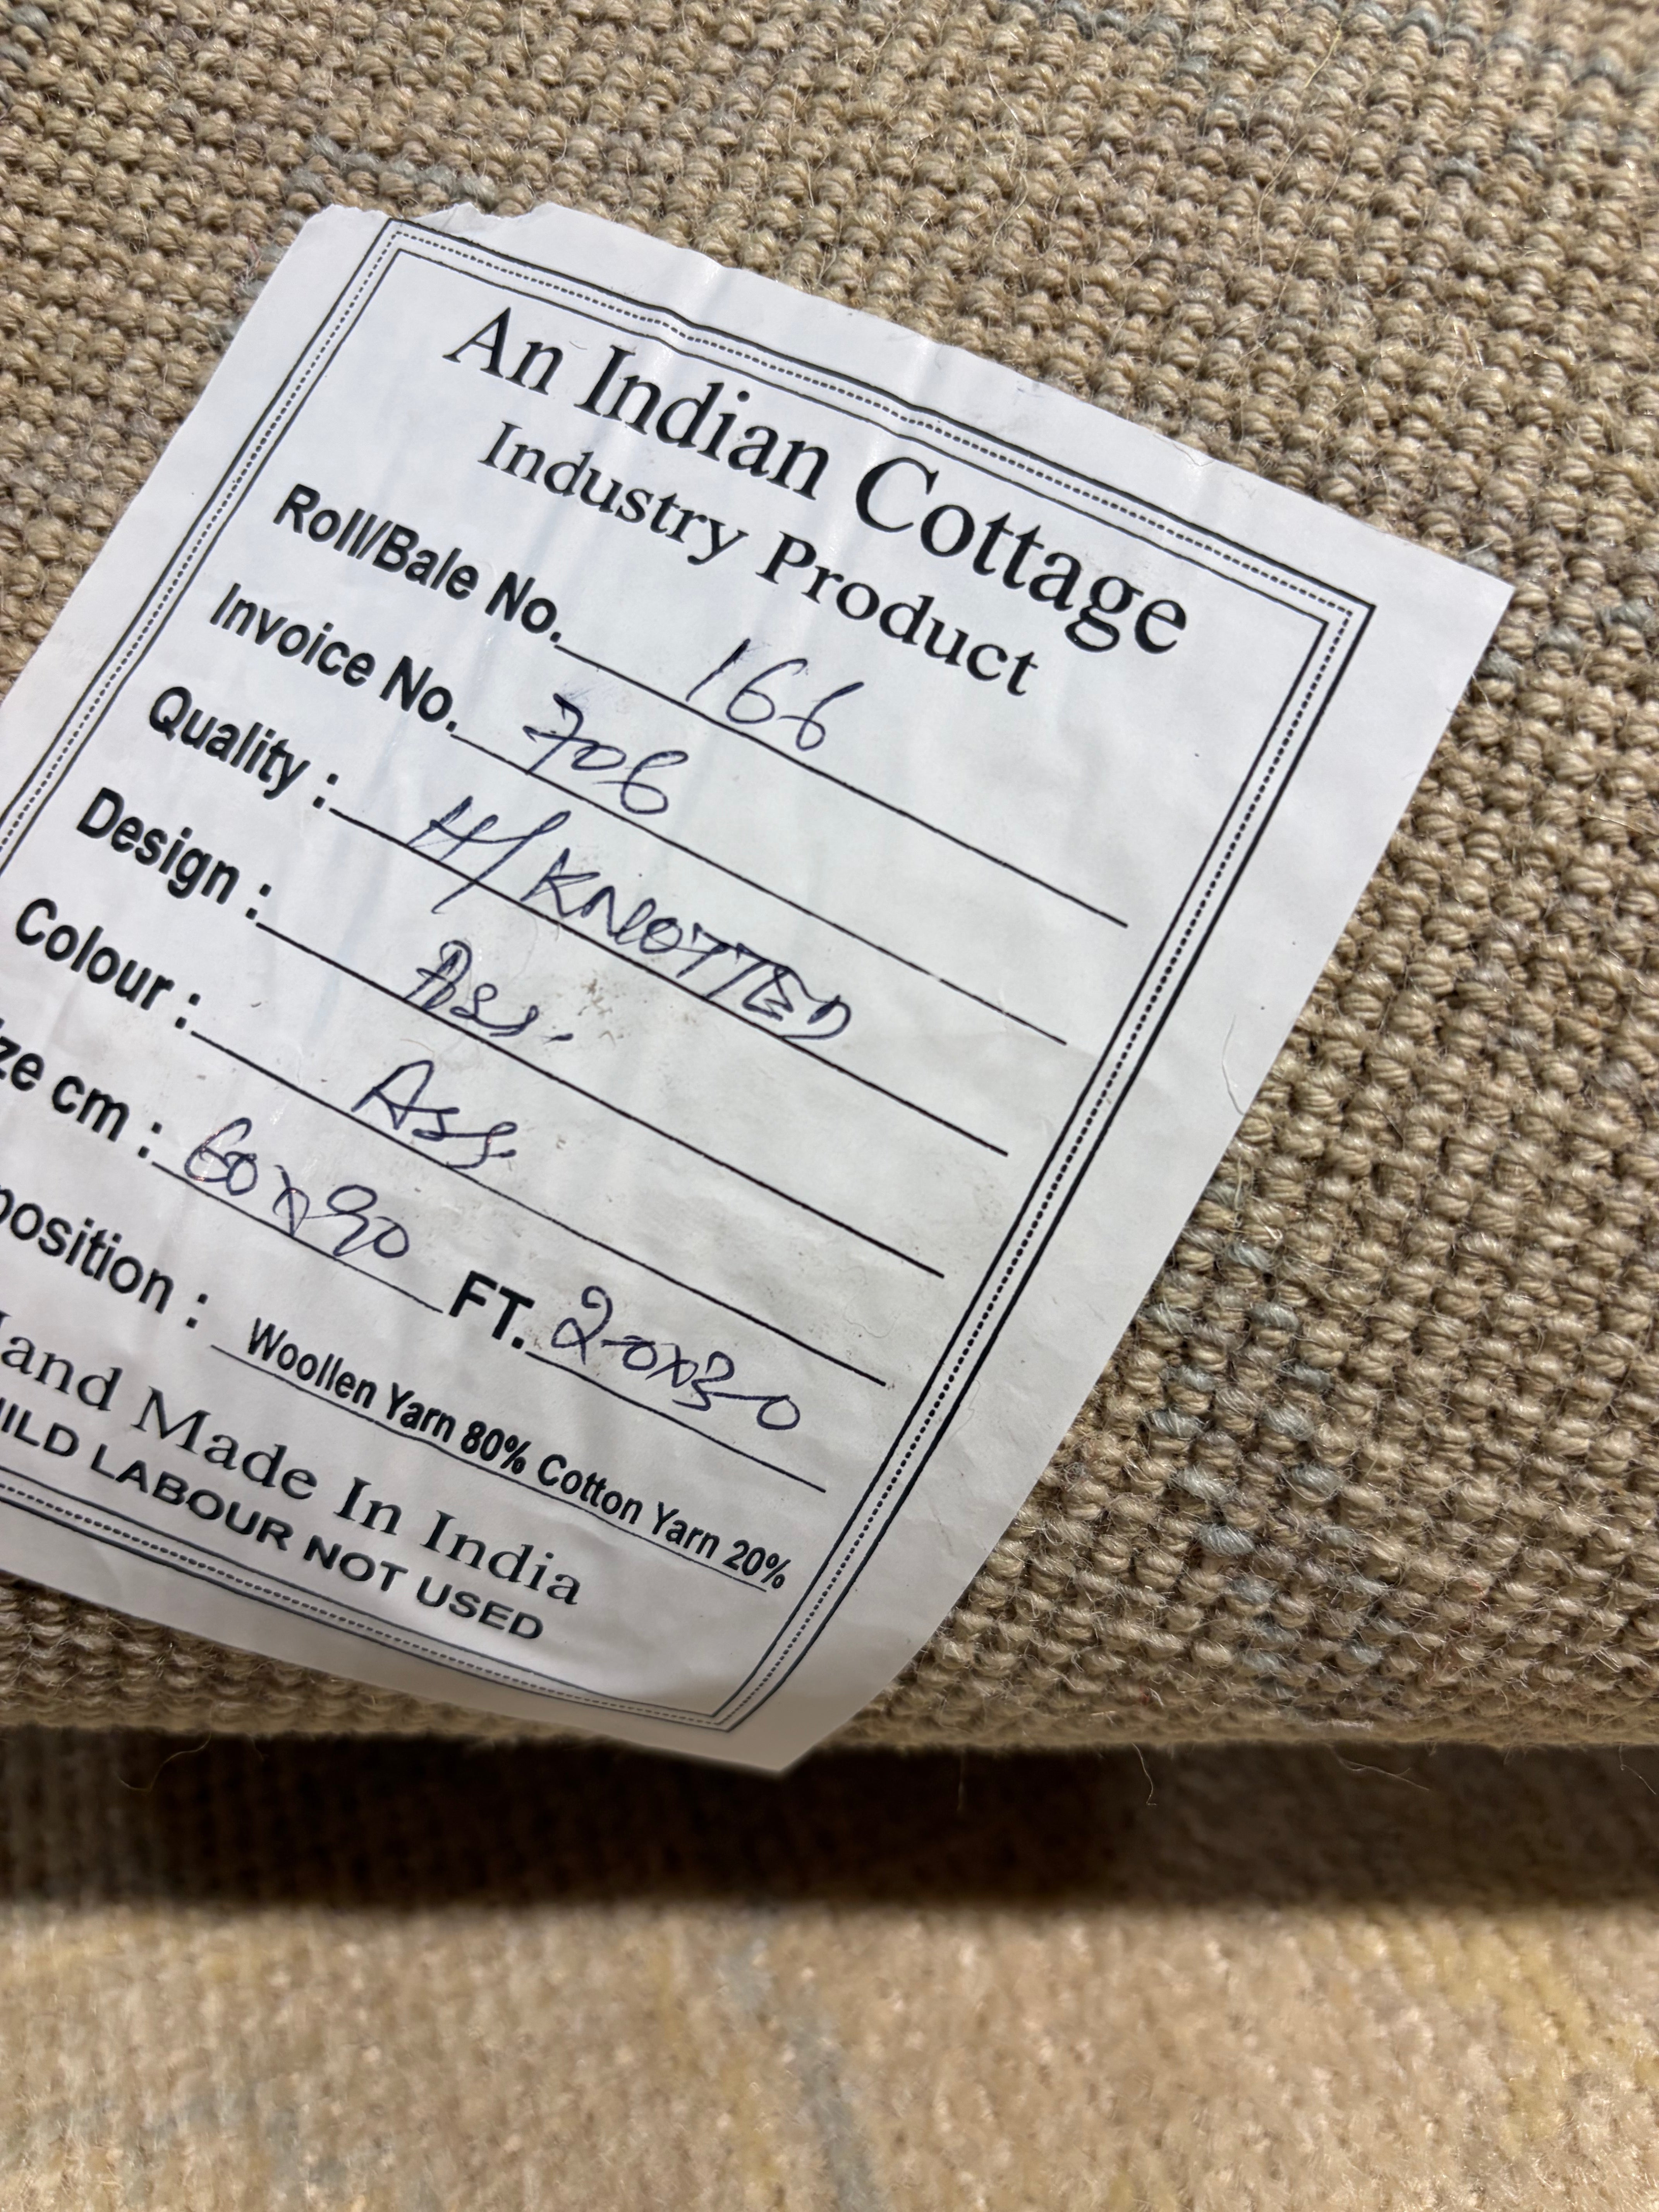 An Indian Cottage
Industry Product
Roll/Bale No. 166
Invoice No. 706
Quality : H/KNOTTED
Design : Ass.
Colour : Ass.
ze cm : 60x90 FT. 2-0x3-0
position : Woollen Yarn 80% Cotton Yarn 20%
and Made In India
ILD LABOUR NOT USED